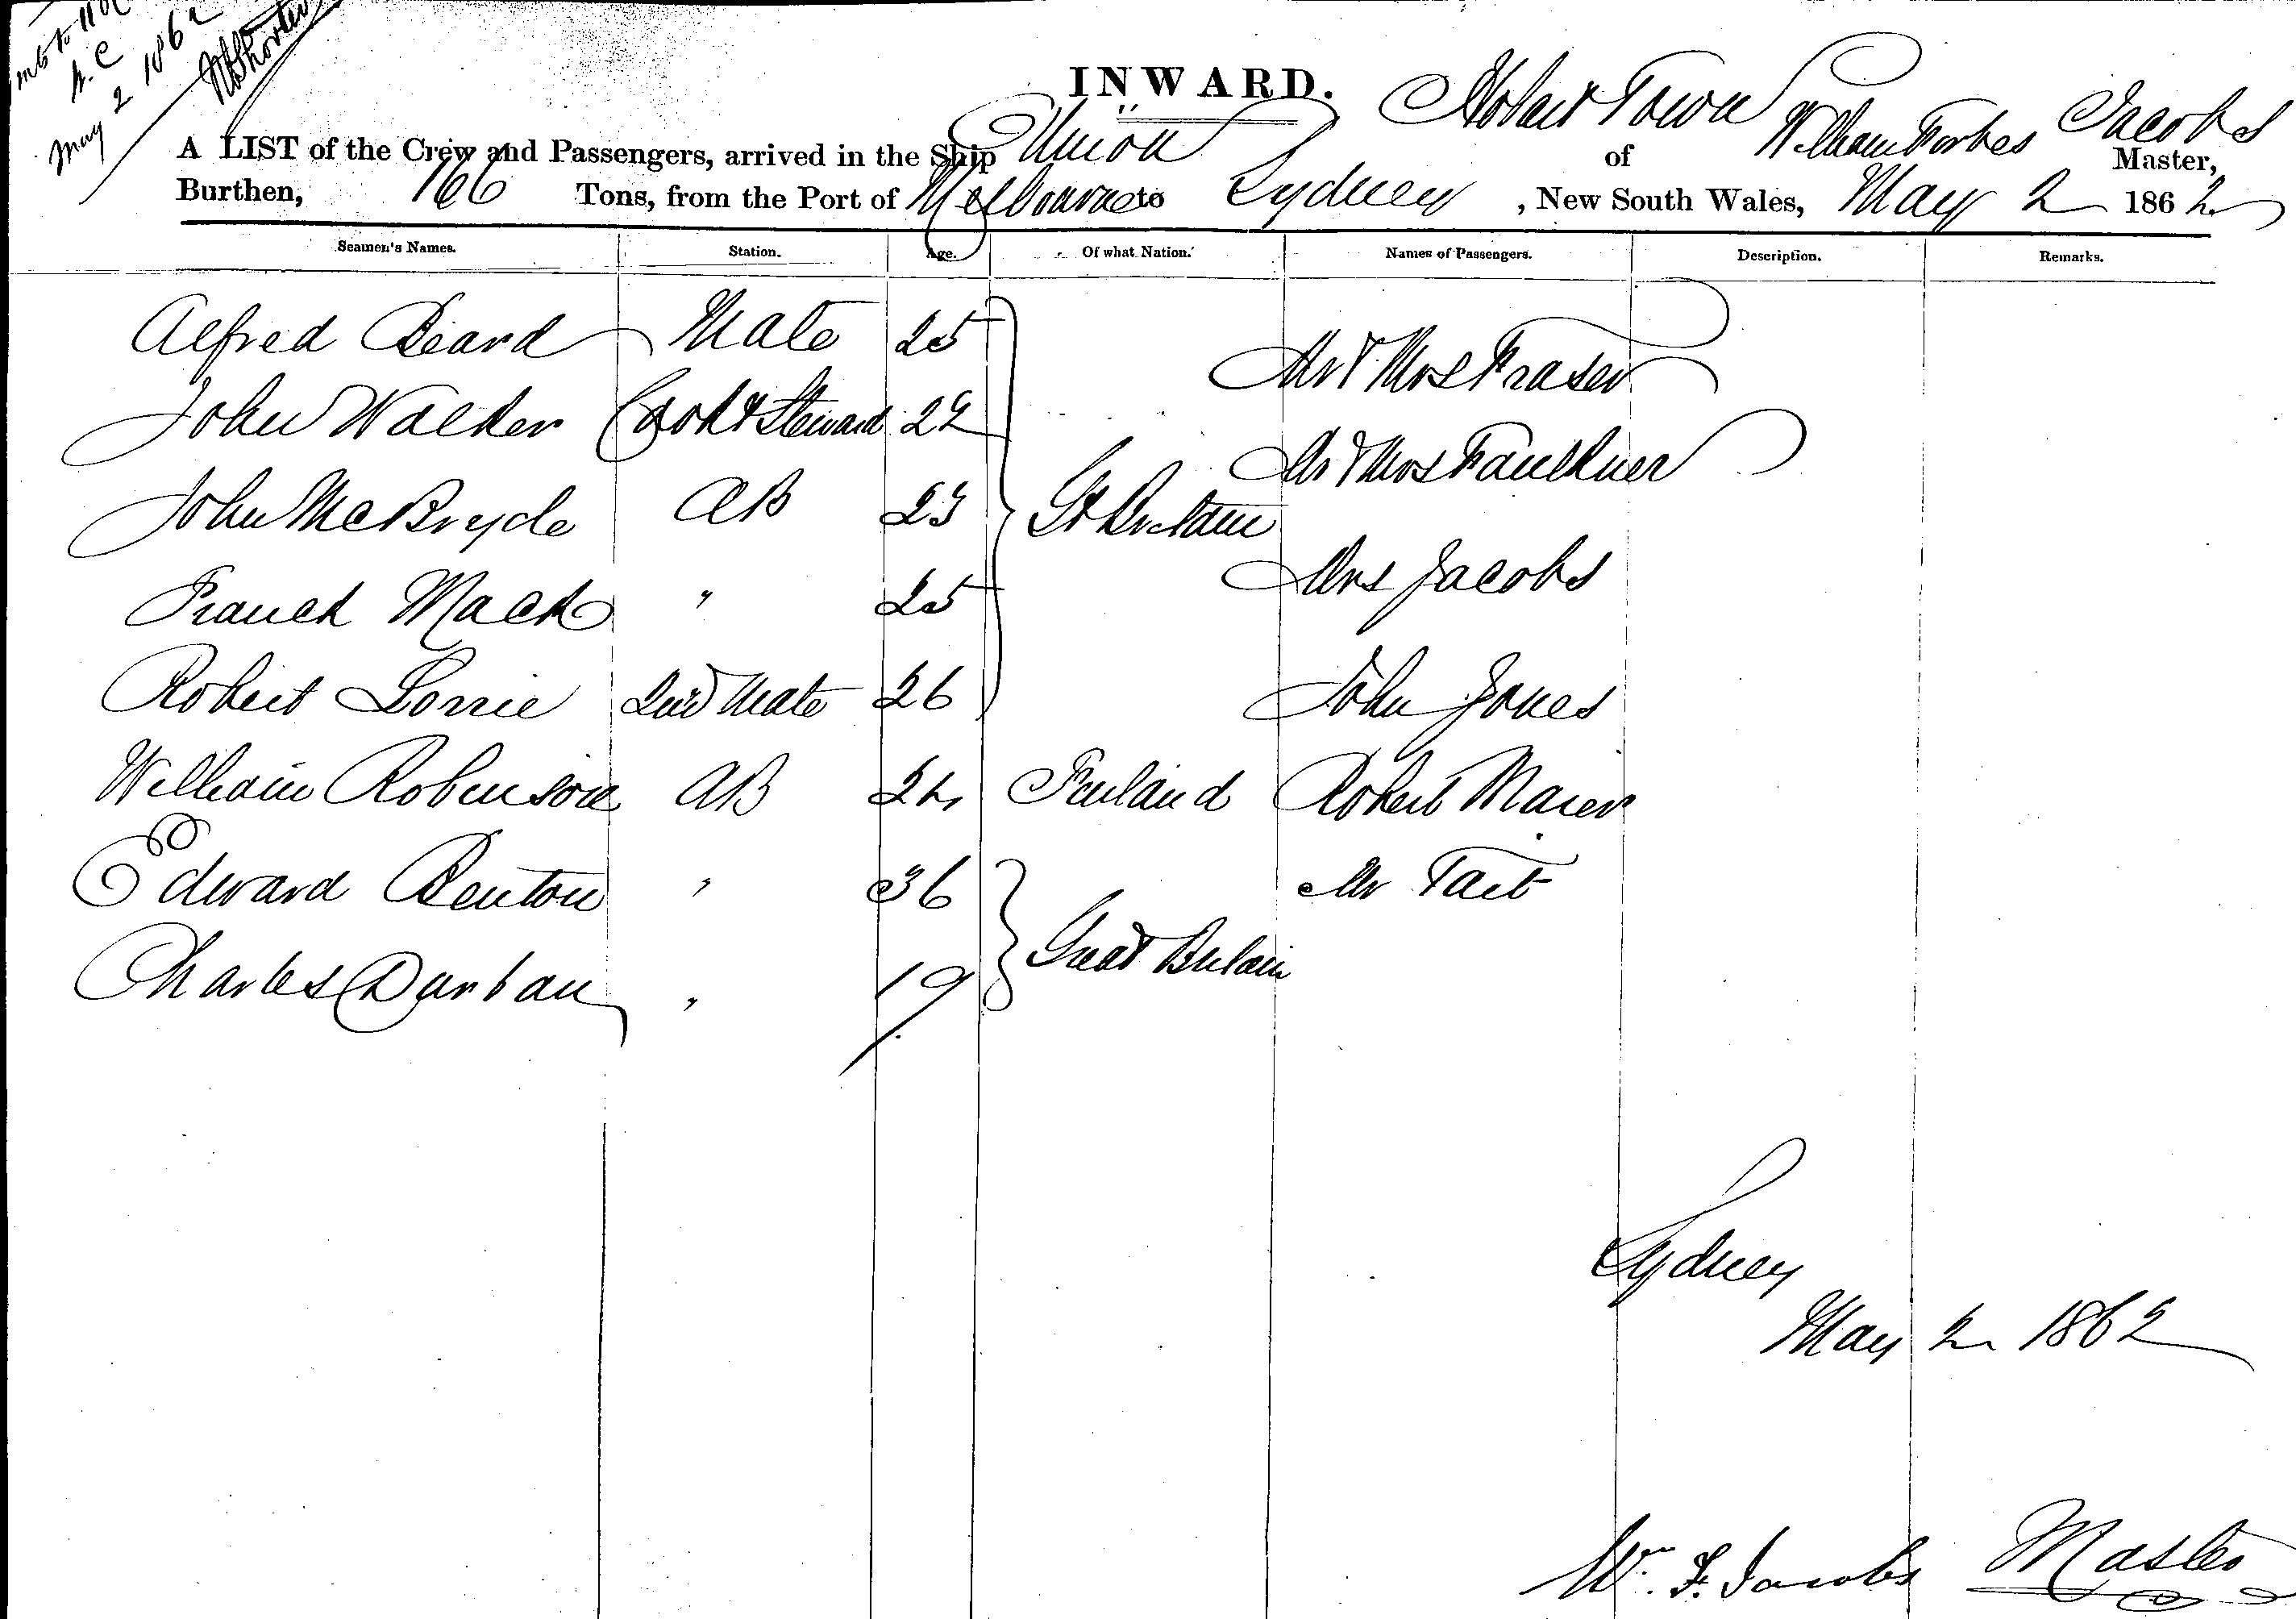 May 2 1862
INWARD.
A LIST of the Crew and Passengers, arrived in the Ship Union of Hobart Town William Forbes Jacobs Master,
Burthen, 166 Tons, from the Port of Melbourne to Sydney, New South Wales, May 2 1862
Seamen's Names. Station. Age. Of what Nation. Names of Passengers. Description. Remarks.
Alfred Beard Mate 25
Mr & Mrs Fraser
John Walker Cook & Steward 22
Mr & Mrs Faulkner
John McBryde AB 23 Gt Britain
Mrs Jacobs
Franck Mack " 25
Robert Lorrie 2nd Mate 26 John Jones
William Robinson AB 24 Finland Robert Maier
Edward Benton " 36 Mr Tait
Great Britain
Charles Durban " 19
Sydney
May 2 1862
W. F. Jacobs Master